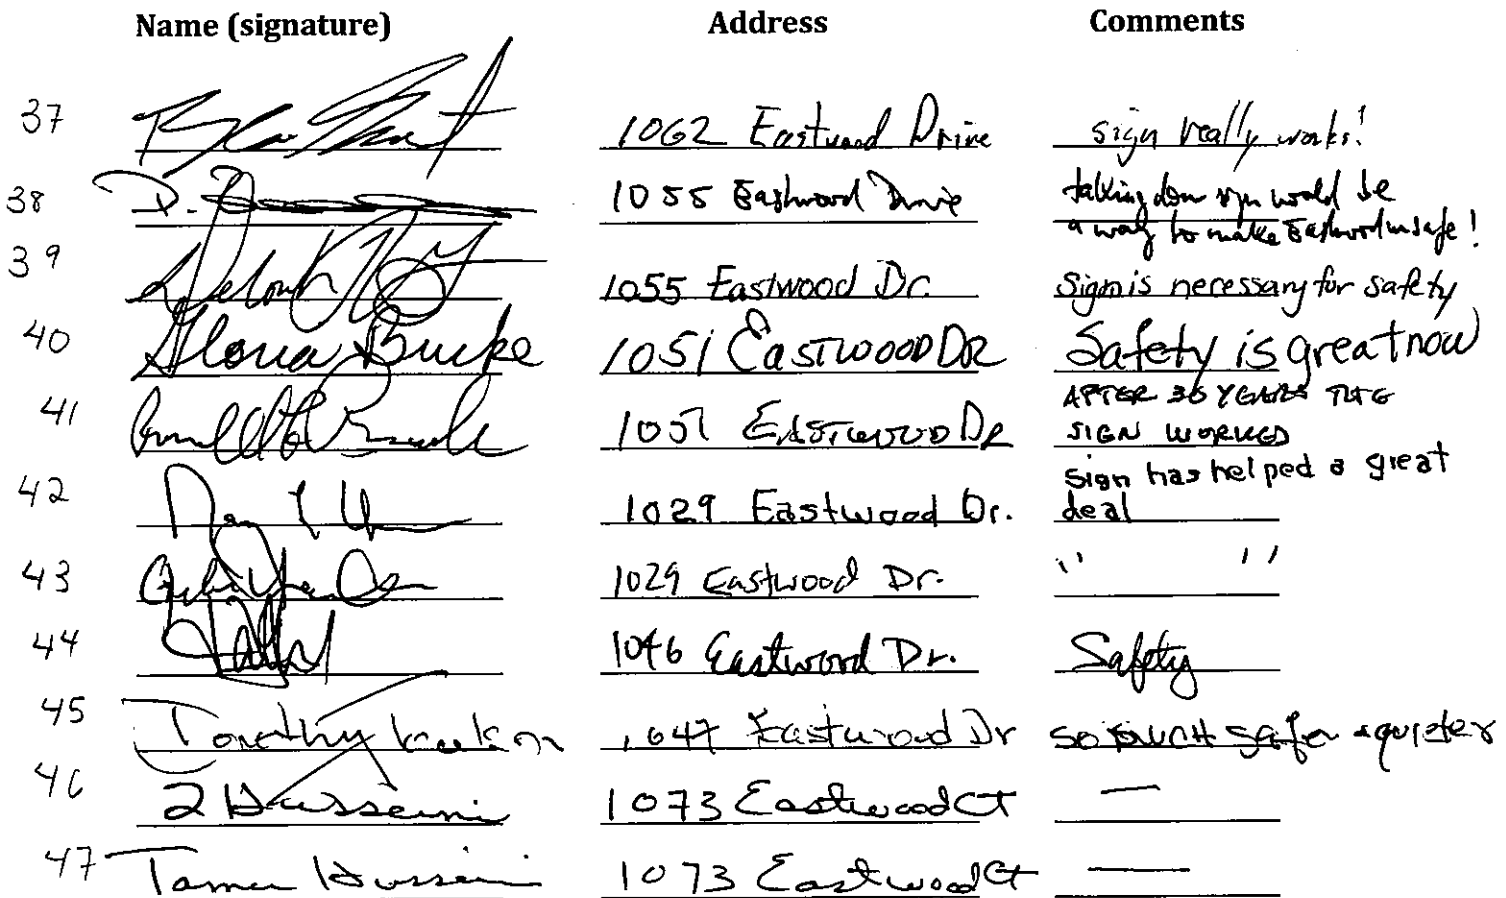 Name (signature) Address Comments
37 1062 Eastwood Drive sign really works!
38 D. 1055 Eastwood Drive taking down sign would be
a way to make Eastwood unsafe!
39 1055 Eastwood Dr. Sign is necessary for safety
40 Gloria Burke 1051 EASTWOOD DR Safety is great now
41 1051 EASTWOOD DR AFTER 36 YEARS THE
SIGN WORKED
42 1029 Eastwood Dr. Sign has helped a great
deal
43 1029 Eastwood Dr. " "
44 1046 Eastwood Dr. Safety
45 Dorothy 1047 Eastwood Dr so MUCH safer & quieter
46 Husseini 1073 Eastwood CT —
47 Tamer Husseini 1073 Eastwood Ct —